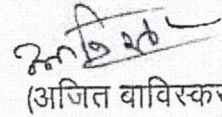 (अजित वाविस्कर